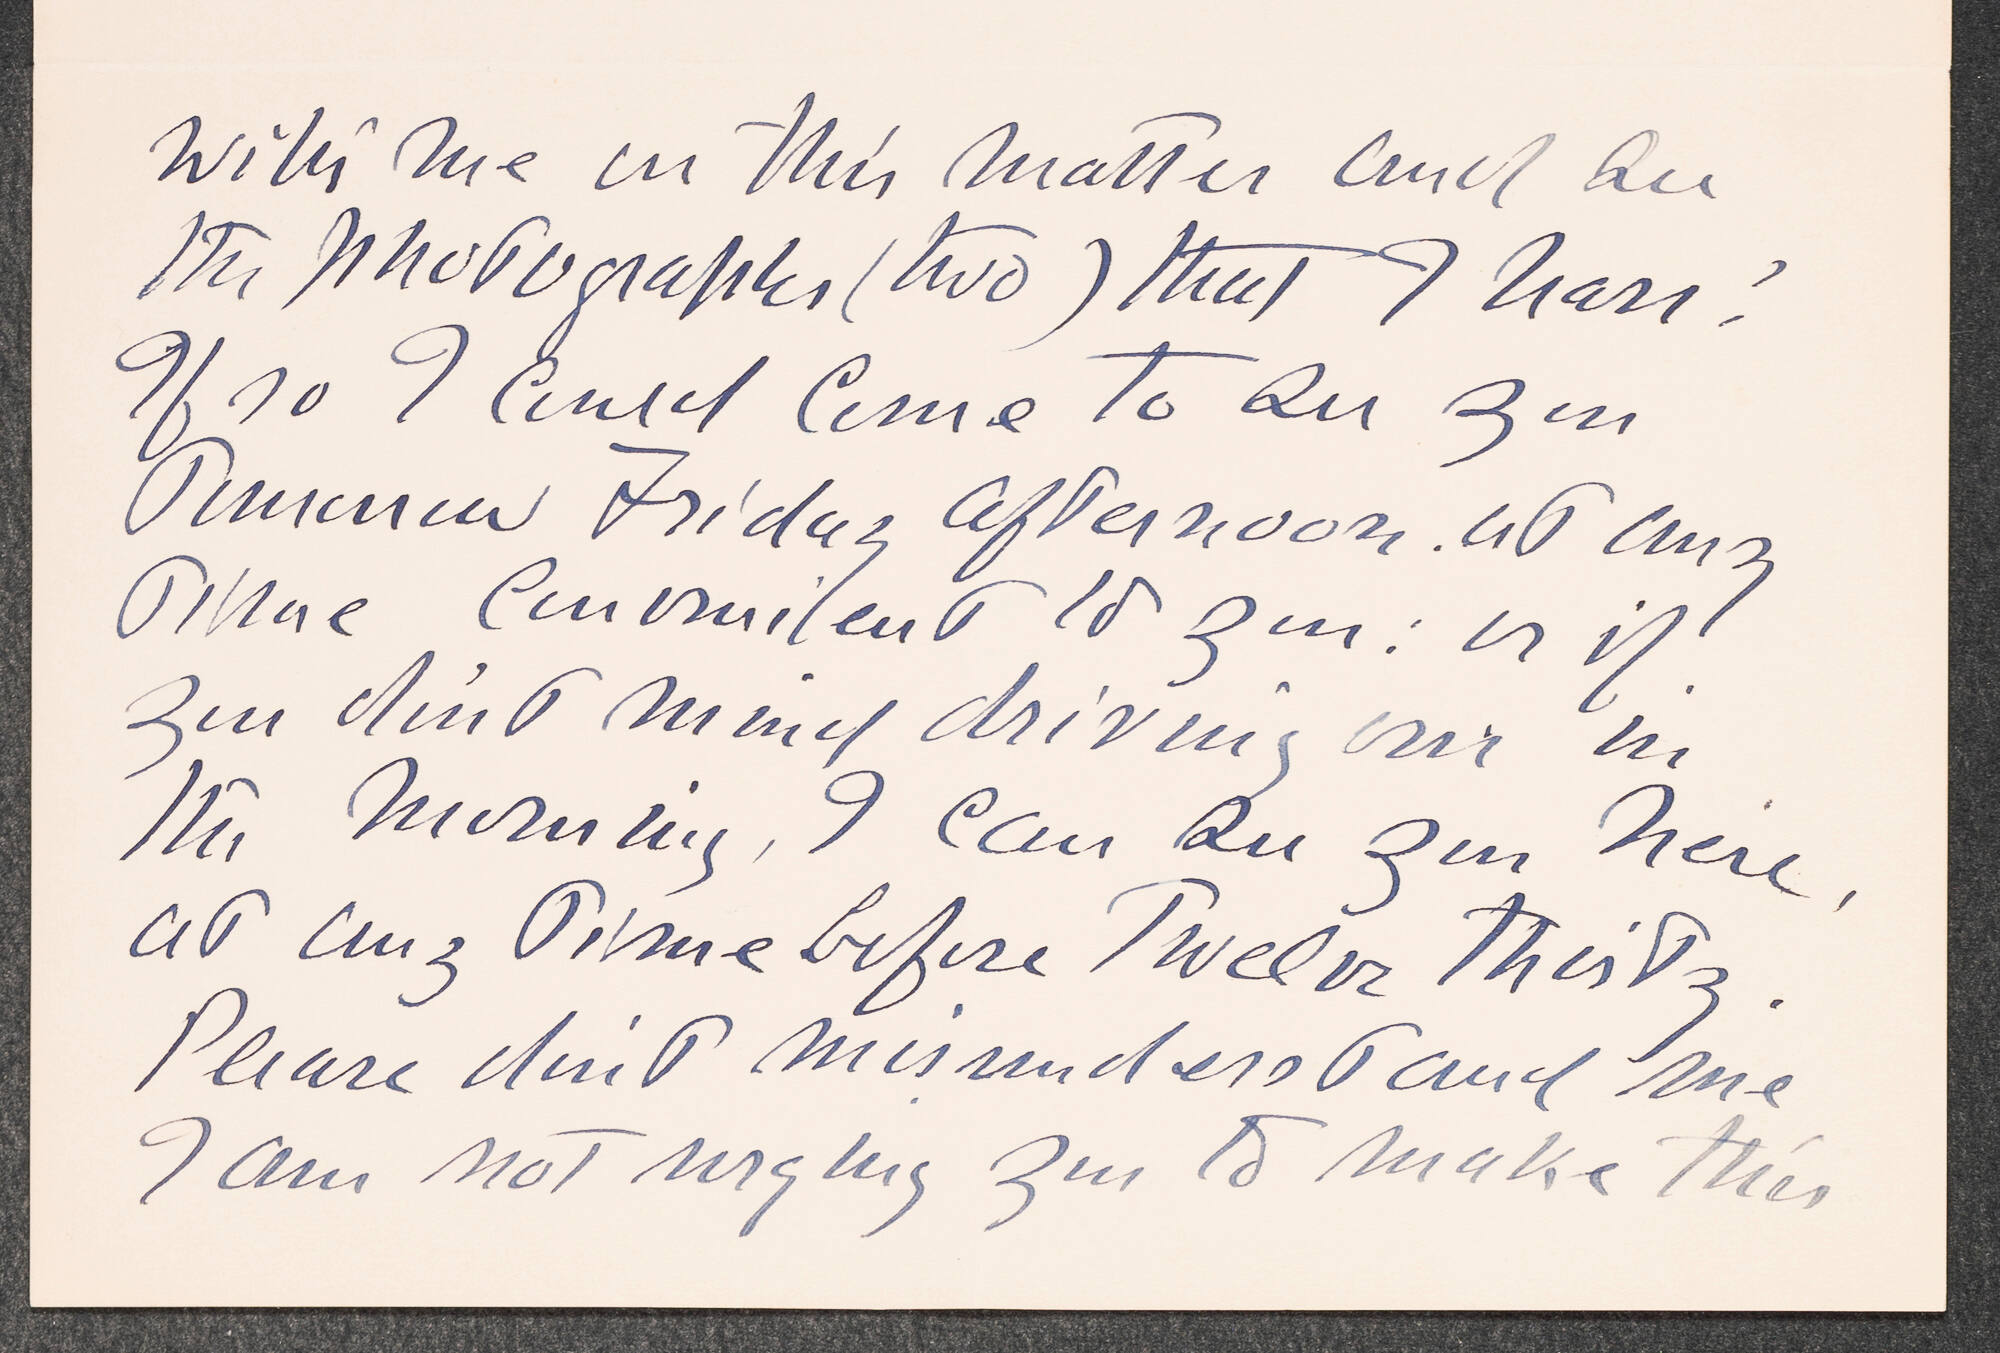 with me in this matter and see
the photographs (two) that I have?
If so I could come to see you
Tomorrow Friday afternoon. at any
time convenient to you: or if
you don't mind driving over in
the morning, I can see you here,
at any time before Twelve thirty.
Please don't misunderstand me
I am not urging you to make this